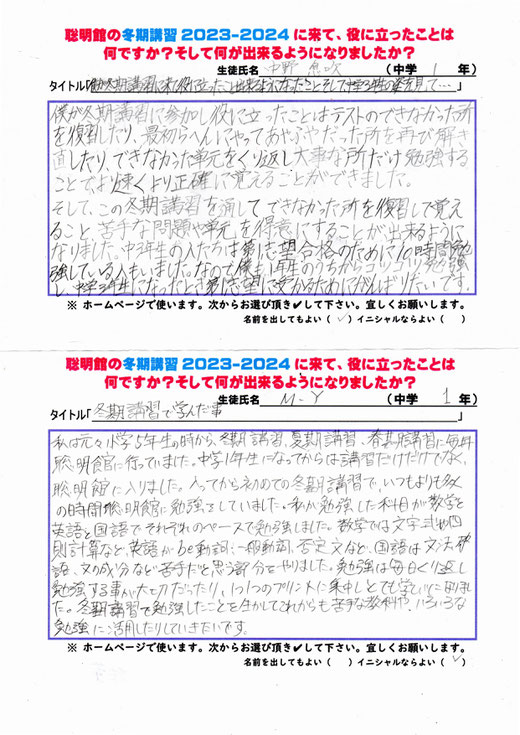 聡明館の冬期講習2023-2024に来て、役に立ったことは
何ですか？そして何が出来るようになりましたか？
生徒氏名 中野 (中学 1 年)
タイトル「僕が冬期講習に来て役に立ったこと出来るようになったことそして中学3年の姿を見て…」
僕が冬期講習に参加し役に立ったことはテストのできなかった所
を復習したり、最初らへんにやってあやふやだった所を再び解き
直したり、できなかった単元をくり返し大事な所だけ勉強する
ことでより速くより正確に覚えることができました。
そして、この冬期講習を通してできなかった所を復習して覚え
ること、苦手な問題や単元を得意にすることが出来るように
なりました。中3年生の人たちは第1志望合格のために10時間勉
強している人もいました。なので僕も1年生のうちからコツコツ勉強
し中学3年生になったとき第1志望に受かるためにがんばりたいです。
※ ホームページで使います。次からお選び頂き✔して下さい。宜しくお願いします。
名前を出してもよい（✓）イニシャルならよい（ ）
聡明館の冬期講習2023-2024に来て、役に立ったことは
何ですか？そして何が出来るようになりましたか？
生徒氏名 M.Y (中学 1 年)
タイトル「冬期講習で学んだ事」
私は元々小学5年生の時から、冬期講習、夏期講習、春期講習に毎年
聡明館に行っていました。中学1年生になってからは講習だけだけでなく、
聡明館に入りました。入ってから初めての冬期講習で、いつもよりも多く
の時間聡明館に勉強をしていました。私が勉強した科目が数学と
英語と国語でそれぞれのペースで勉強しました。数学では文字式や四
則計算など、英語がbe動詞、一般動詞、否定文など、国語は文法や
語、文の成分など苦手だと思う部分をやりました。勉強は毎日くり返し
勉強する事が大切だったり、1つ1つのプリントに集中しとても学びになりまし
た。冬期講習で勉強したことを生かしてこれからも苦手な教科や、いろいろな
勉強に活用したりしていきたいです。
※ ホームページで使います。次からお選び頂き✔して下さい。宜しくお願いします。
名前を出してもよい（ ）イニシャルならよい（✓）